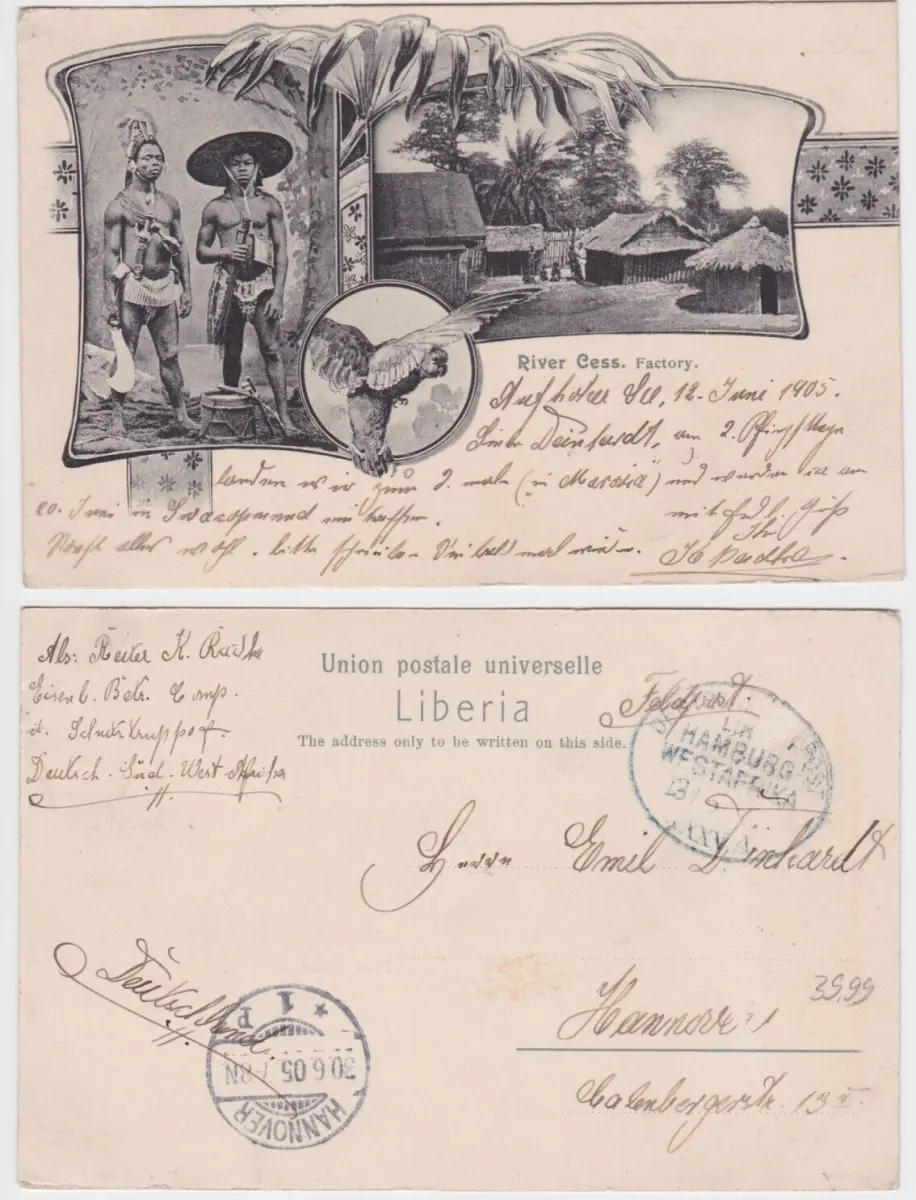 River Cess. Factory.
Auf hoher See, 12. Juni 1905.
Deinhardt, am 2. Pfingsttage
landen wir zum 2. male (in ) und werden wir am
20. Juni in eintreffen. mit Gruß
alles wohl. bitte mal Ihr
Als: Reiter K.
Eisenb. Betr. Comp.
d. Schutztruppe
Deutsch. Süd-West Afrika
Union postale universelle
Liberia
The address only to be written on this side.
Feldpost.
LIN
HAMBURG
WESTAFRIKA
LXXV
Herrn Emil Deinhardt
Deutschland.
HANNOVER
30.6.05. 7-8N
* 1 P
Hannover
39.99
Calenbergerstr. 13 II.